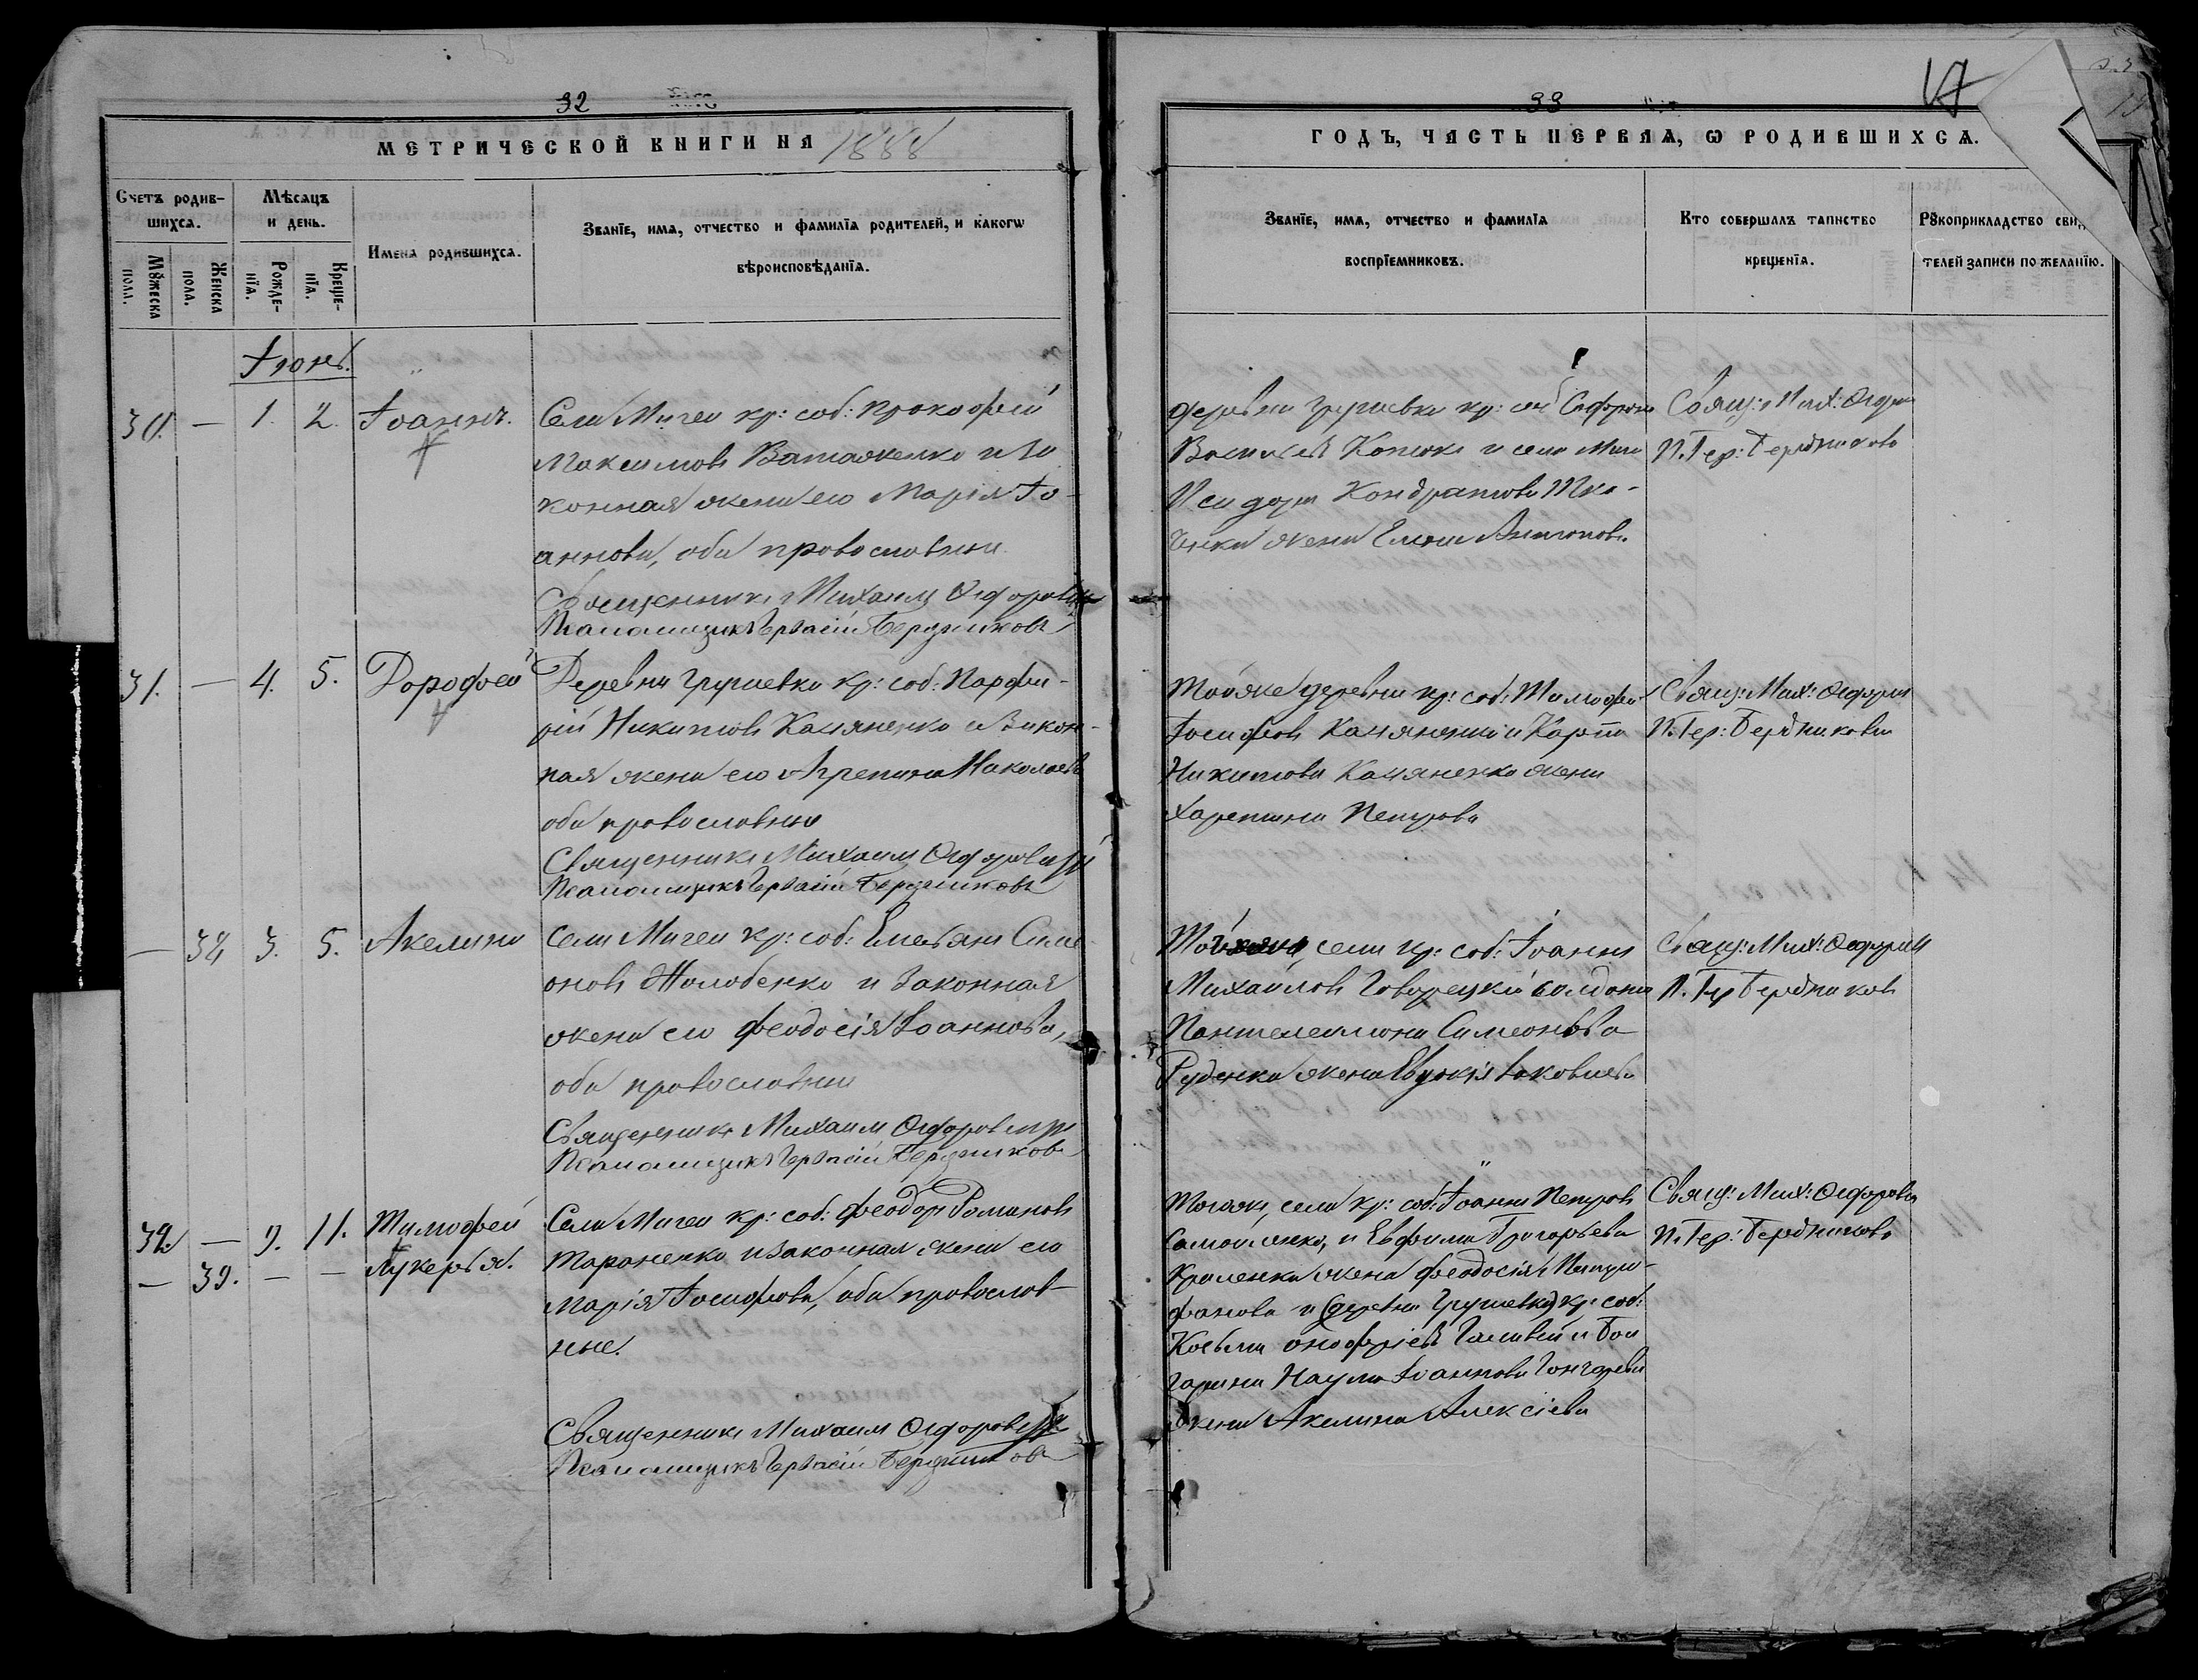 32
МЕТРИЧЕСКОЙ КНИГИ НА 1888
Счетъ родив-
шихсѧ.
Мꙋжеска
пола.
Женска
пола.
Мѣсяцъ
и день.
Рожде-
нїѧ.
Креще-
нїѧ.
Имена родившихсѧ.
Званїе, имѧ, отчество и фамилїѧ родителей, и какогѡ
вѣроисповѣданїѧ.
Іюнь.
30. — 1. 2. Іоаннъ.
Села Мигеи кр: соб: Прокофій
Максимовъ и за
конная жена его Марія Іо-
аннова, оба православные.
Священникъ Михаилъ
Псаломщикъ Гервасій Бердниковъ
31. — 4. 5. Дорофей
Деревни Грушевки кр: соб: Парфи-
рій Никитовъ Касяненко и закон-
ная жена его Агрепина Николаева
оба православные
Священникъ Михаилъ
Псаломщикъ Гервасій Бердниковъ
— 38 3. 5. Акелина
Села Мигеи кр: соб: Емельянъ Симе
оновъ Жолобенко и законная
жена его Феодосія Іоаннова,
оба православные
Священникъ Михаилъ
Псаломщикъ Гервасій Бердниковъ
32. — 9. 11. Тимофей
— 39. — — Лукерья.
Села Мигеи кр: соб: Феодоръ Романовъ
Тараненко и законная жена его
Марія Іосифова, оба православ-
ные.
Священникъ Михаилъ
Псаломщикъ Гервасій Бердниковъ
33
17
ГОДЪ, ЧАСТЬ ПЕРВАѦ, Ѡ РОДИВШИХСѦ.
Званїе, имѧ, отчество и фамилїѧ
воспрїемниковъ.
Кто совершалъ таинство
крещенїѧ.
Рꙋкоприкладство свид
телей записи по желанїю.
деревни Грушевки кр: соб
и села Мигеи
Исидора Кондратова Тка-
ченка жена Елена Антонова
Свящ: Мих:
П. Гер: Бердниковъ
Тойже деревни кр: соб: Тимофей
Іосифовъ Касяненко и Карпа
Никитова Касяненка жена
Харетина Петрова
Свящ: Мих:
П. Гер: Бердниковъ
села кр: соб: Іоаннъ
Михайловъ и солдата
Пантелеимона Симеонова
Руденка жена Евдокія Іаковлева
Свящ: Мих:
П. Гер Бердниковъ
Тогоже, села кр: соб: Іоаннъ Петровъ
Самойленко, и Евфима Григорьева
жена Феодосія
и (деревни Грушевки) кр: соб:
Косьма Онофріевъ и
Наума Іоаннова Гончарева
жена Акелина Алексіева
Свящ: Мих:
П. Гер: Бердниковъ